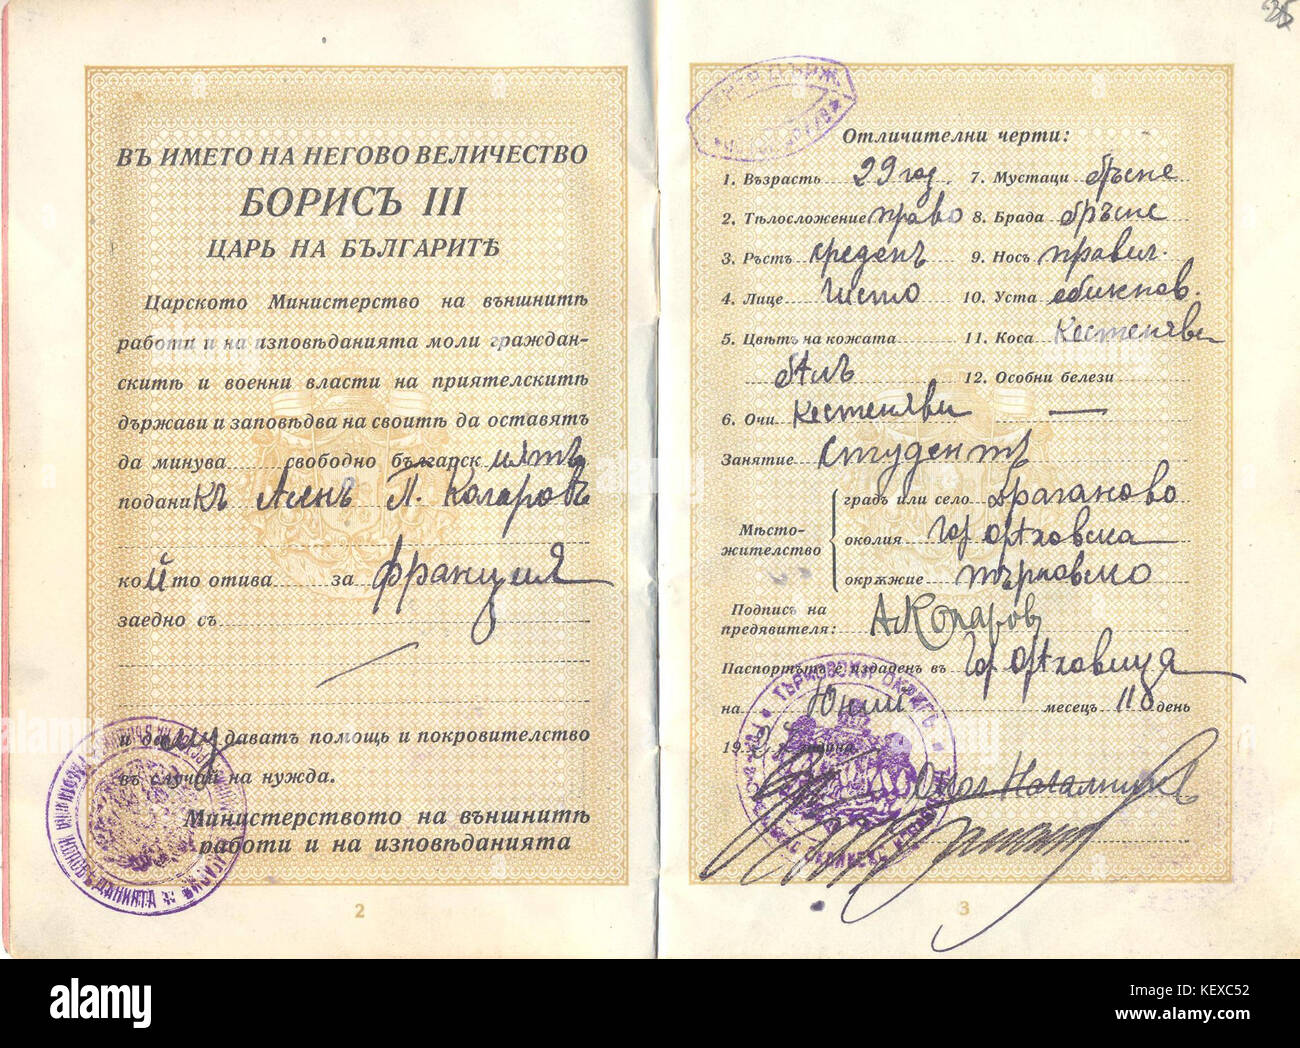 ВЪ ИМЕТО НА НЕГОВО ВЕЛИЧЕСТВО
БОРИСЪ III
ЦАРЬ НА БЪЛГАРИТѢ
Царското Министерство на външнитѣ
работи и на изповѣданията моли граждан-
скитѣ и военни власти на приятелскитѣ
държави и заповѣдва на своитѣ да оставятъ
да минува свободно българск иятъ
подани къ Асенъ П. Кагаровъ
ко й то отива за Франция
заедно съ
и да му даватъ помощь и покровителство
въ случай на нужда.
Министерството на външнитѣ
работи и на изповѣданията
2
Отличителни черти:
1. Възрасть 29 год.
2. Тѣлосложение право
3. Ръстъ среденъ
4. Лице чисто
5. Цвѣтъ на кожата
бѣлъ
6. Очи Кестеняви
7. Мустаци бръсне
8. Брада бръсне
9. Носъ правил.
10. Уста обикнов.
11. Коса Кестеняви
12. Особни белези
—
Занятие Студентъ
Мѣсто-
жителство
градъ или село Драганово
околия Гор Орѣховска
окрѫжие Търновско
Подписъ на
предявителя: А Кагаров
Паспортътъ е издаденъ въ Гор Орѣховица
на Юний месецъ 110 день
19 година
ТЪРНОВСКИ ОКРѪГЪ
3
alamy
Image ID: KEXC52
www.alamy.com